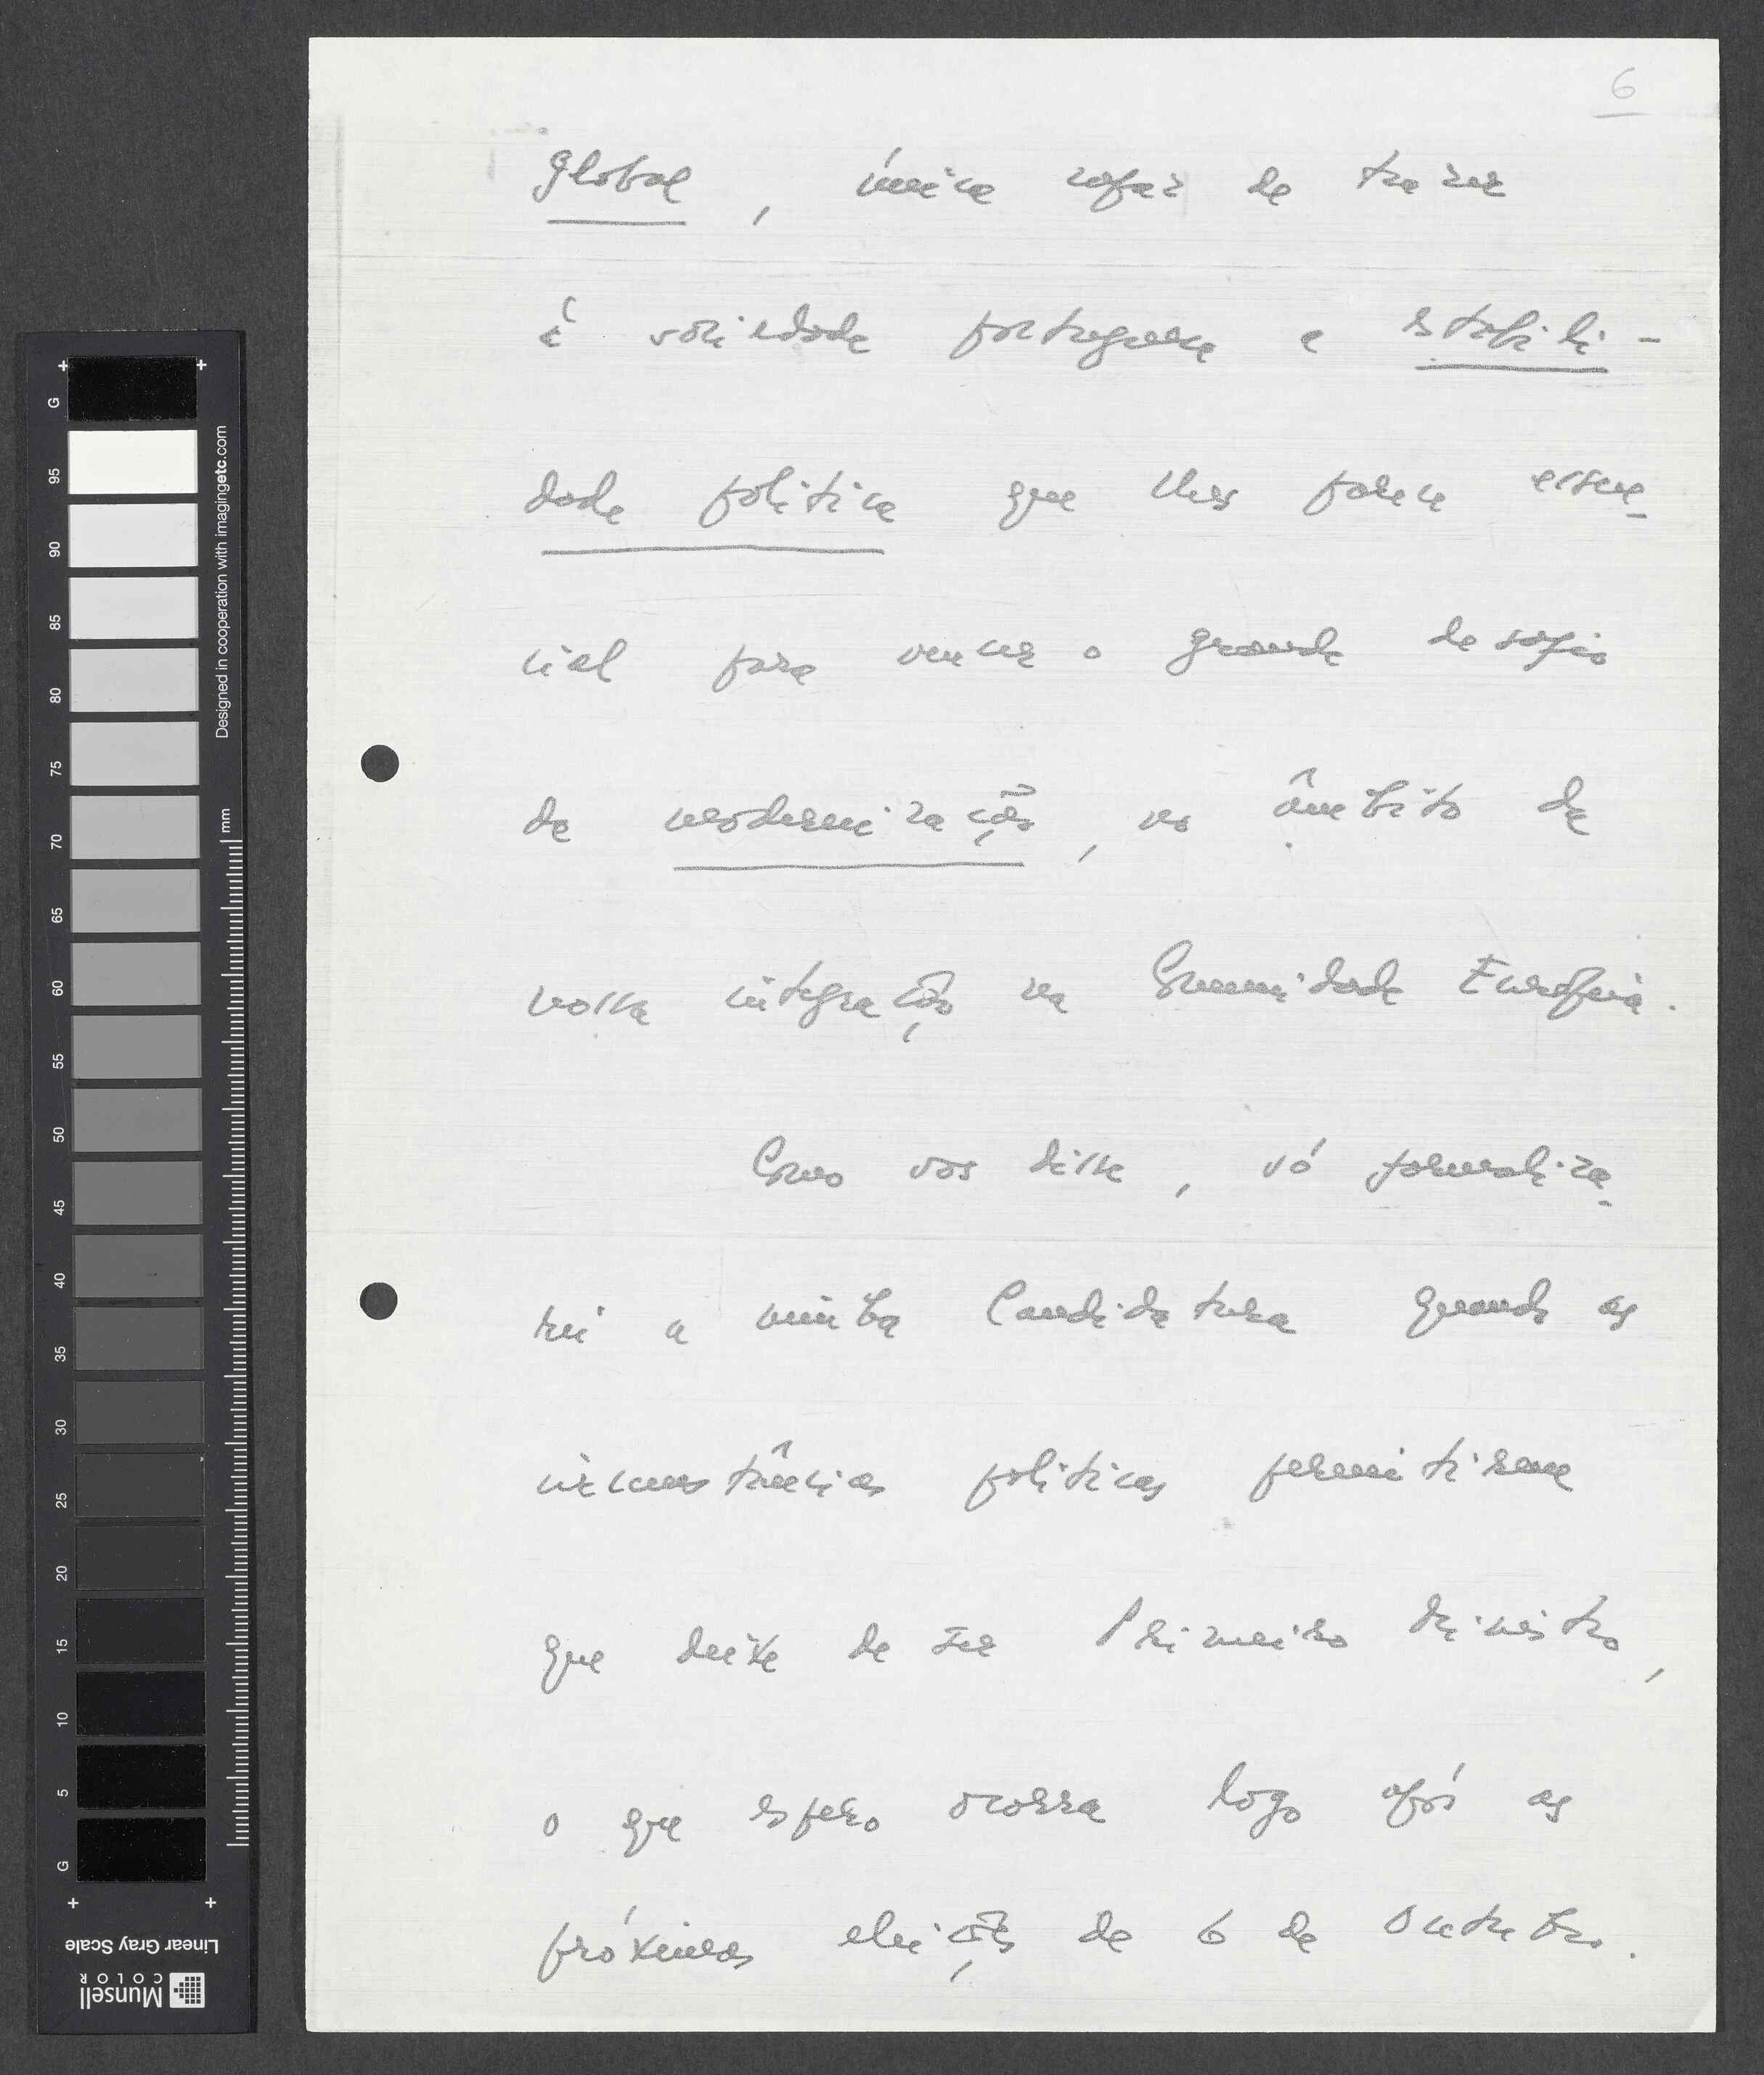 6
global, única capaz de trazer
à sociedade portuguesa a estabili-
dade política que lhes parece essen-
cial para vencer o grande desafio
da modernização, no âmbito da
nossa integração na Comunidade Europeia.
Como vos disse, só formaliza-
rei a minha Candidatura quando as
circunstâncias políticas permitirem
que deixe de ser Primeiro Ministro,
o que espero ocorra logo após as
próximas eleições de 6 de Outubro.
G
95
90
85
80
75
70
65
60
55
50
45
40
35
30
25
20
15
10
5
G
mm
Designed in cooperation with imagingetc.com
Linear Gray Scale
Munsell
COLOR